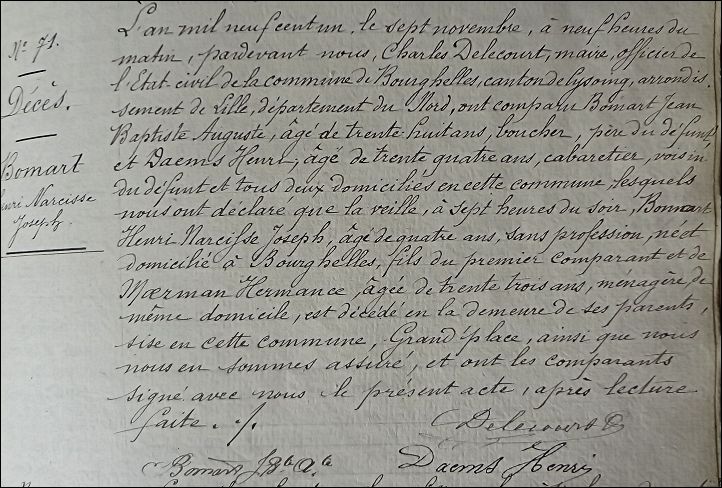 Nº 71.
Décès.
Bomart
Henri Narcisse
Joseph
L'an mil neuf cent un, le sept novembre, à neuf heures du
matin, pardevant nous, Charles Delecourt, maire, officier de
l'Etat civil de la commune de Bourghelles, canton de Cysoing, arrondis-
sement de Lille, département du Nord, ont comparu Bomart Jean
Baptiste Auguste, âgé de trente-huit ans, boucher, père du défunt
et Daems Henri, âgé de trente quatre ans, cabaretier, voisin
du défunt et tous deux domiciliés en cette commune, lesquels
nous ont déclaré que la veille, à sept heures du soir, Bomart
Henri Narcisse Joseph, âgé de quatre ans, sans profession, né et
domicilié à Bourghelles, fils du premier comparant et de
Moerman Hermance, âgée de trente trois ans, ménagère de
même domicile, est décédé en la demeure de ses parents,
sise en cette commune, Grand'place, ainsi que nous
nous en sommes assuré, et ont les comparants
signé avec nous le présent acte, après lecture
faite. ./.
Delecourt C
Bomart J Bte Ate
Daems Henri